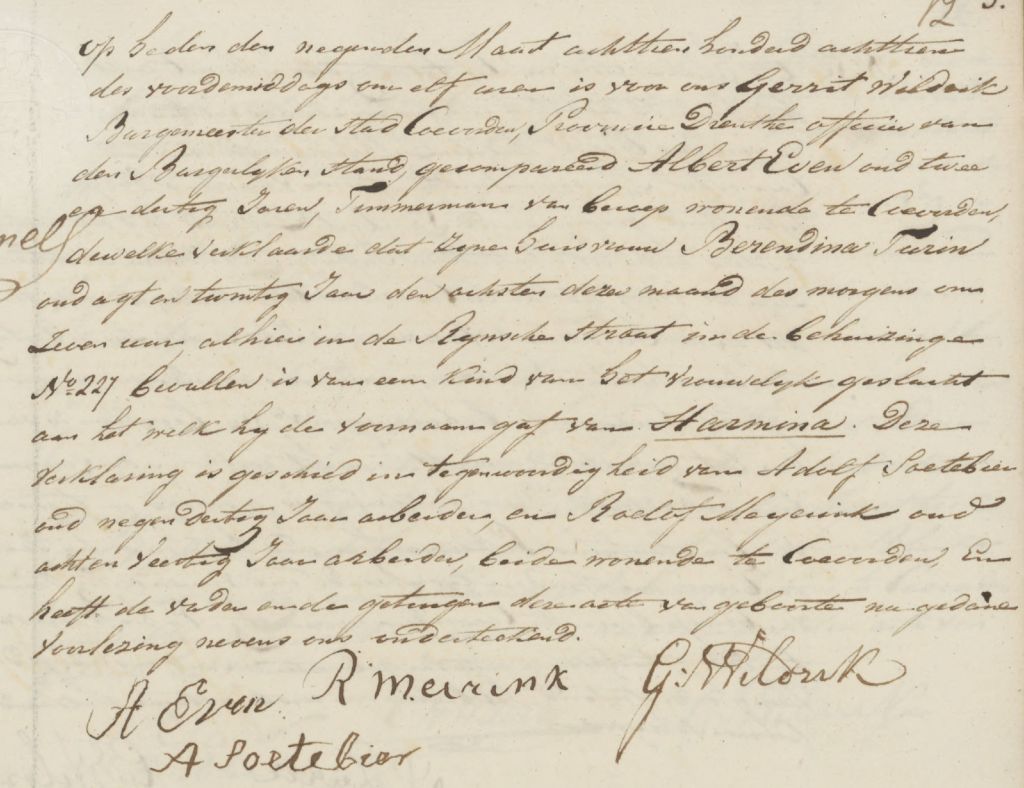 12 3.
op heden den negenden Maart achttien honderd achttien
des voordemiddags om elf uren is voor ons Gerrit Wildrik
Burgemeester der Stad Coevorden, Provincie Drenthe officier van
den Burgerlyken Stand, gecompareerd Albert Even oud twee
en dertig Jaren, Timmerman van beroep wonende te Coevorden,
dewelke verklaarde dat zyne huisvrouw Berendina Turin
oud agt en twintig Jaar den achtsten dezer maand des morgens om
Zeven uur alhier in de Rynsche Straat in de behuizinge
No. 227 bevallen is van een Kind van het vrouwelyk geslacht
aan het welk hy de voornaam gaf van Harmina. Deze
verklaring is geschied in tegenwoordigheid van Adolf Soetebier
oud negen Dertig Jaar arbeider, en Roelof Meyerink oud
acht en veertig Jaar arbeider, beide wonende te Coevorden, En
heeft de vader en de getuigen deze acte van geboorte na gedane
voorlezing nevens ons onderteekend.
A Even R Meirink G. Wildrik
A Soetebier